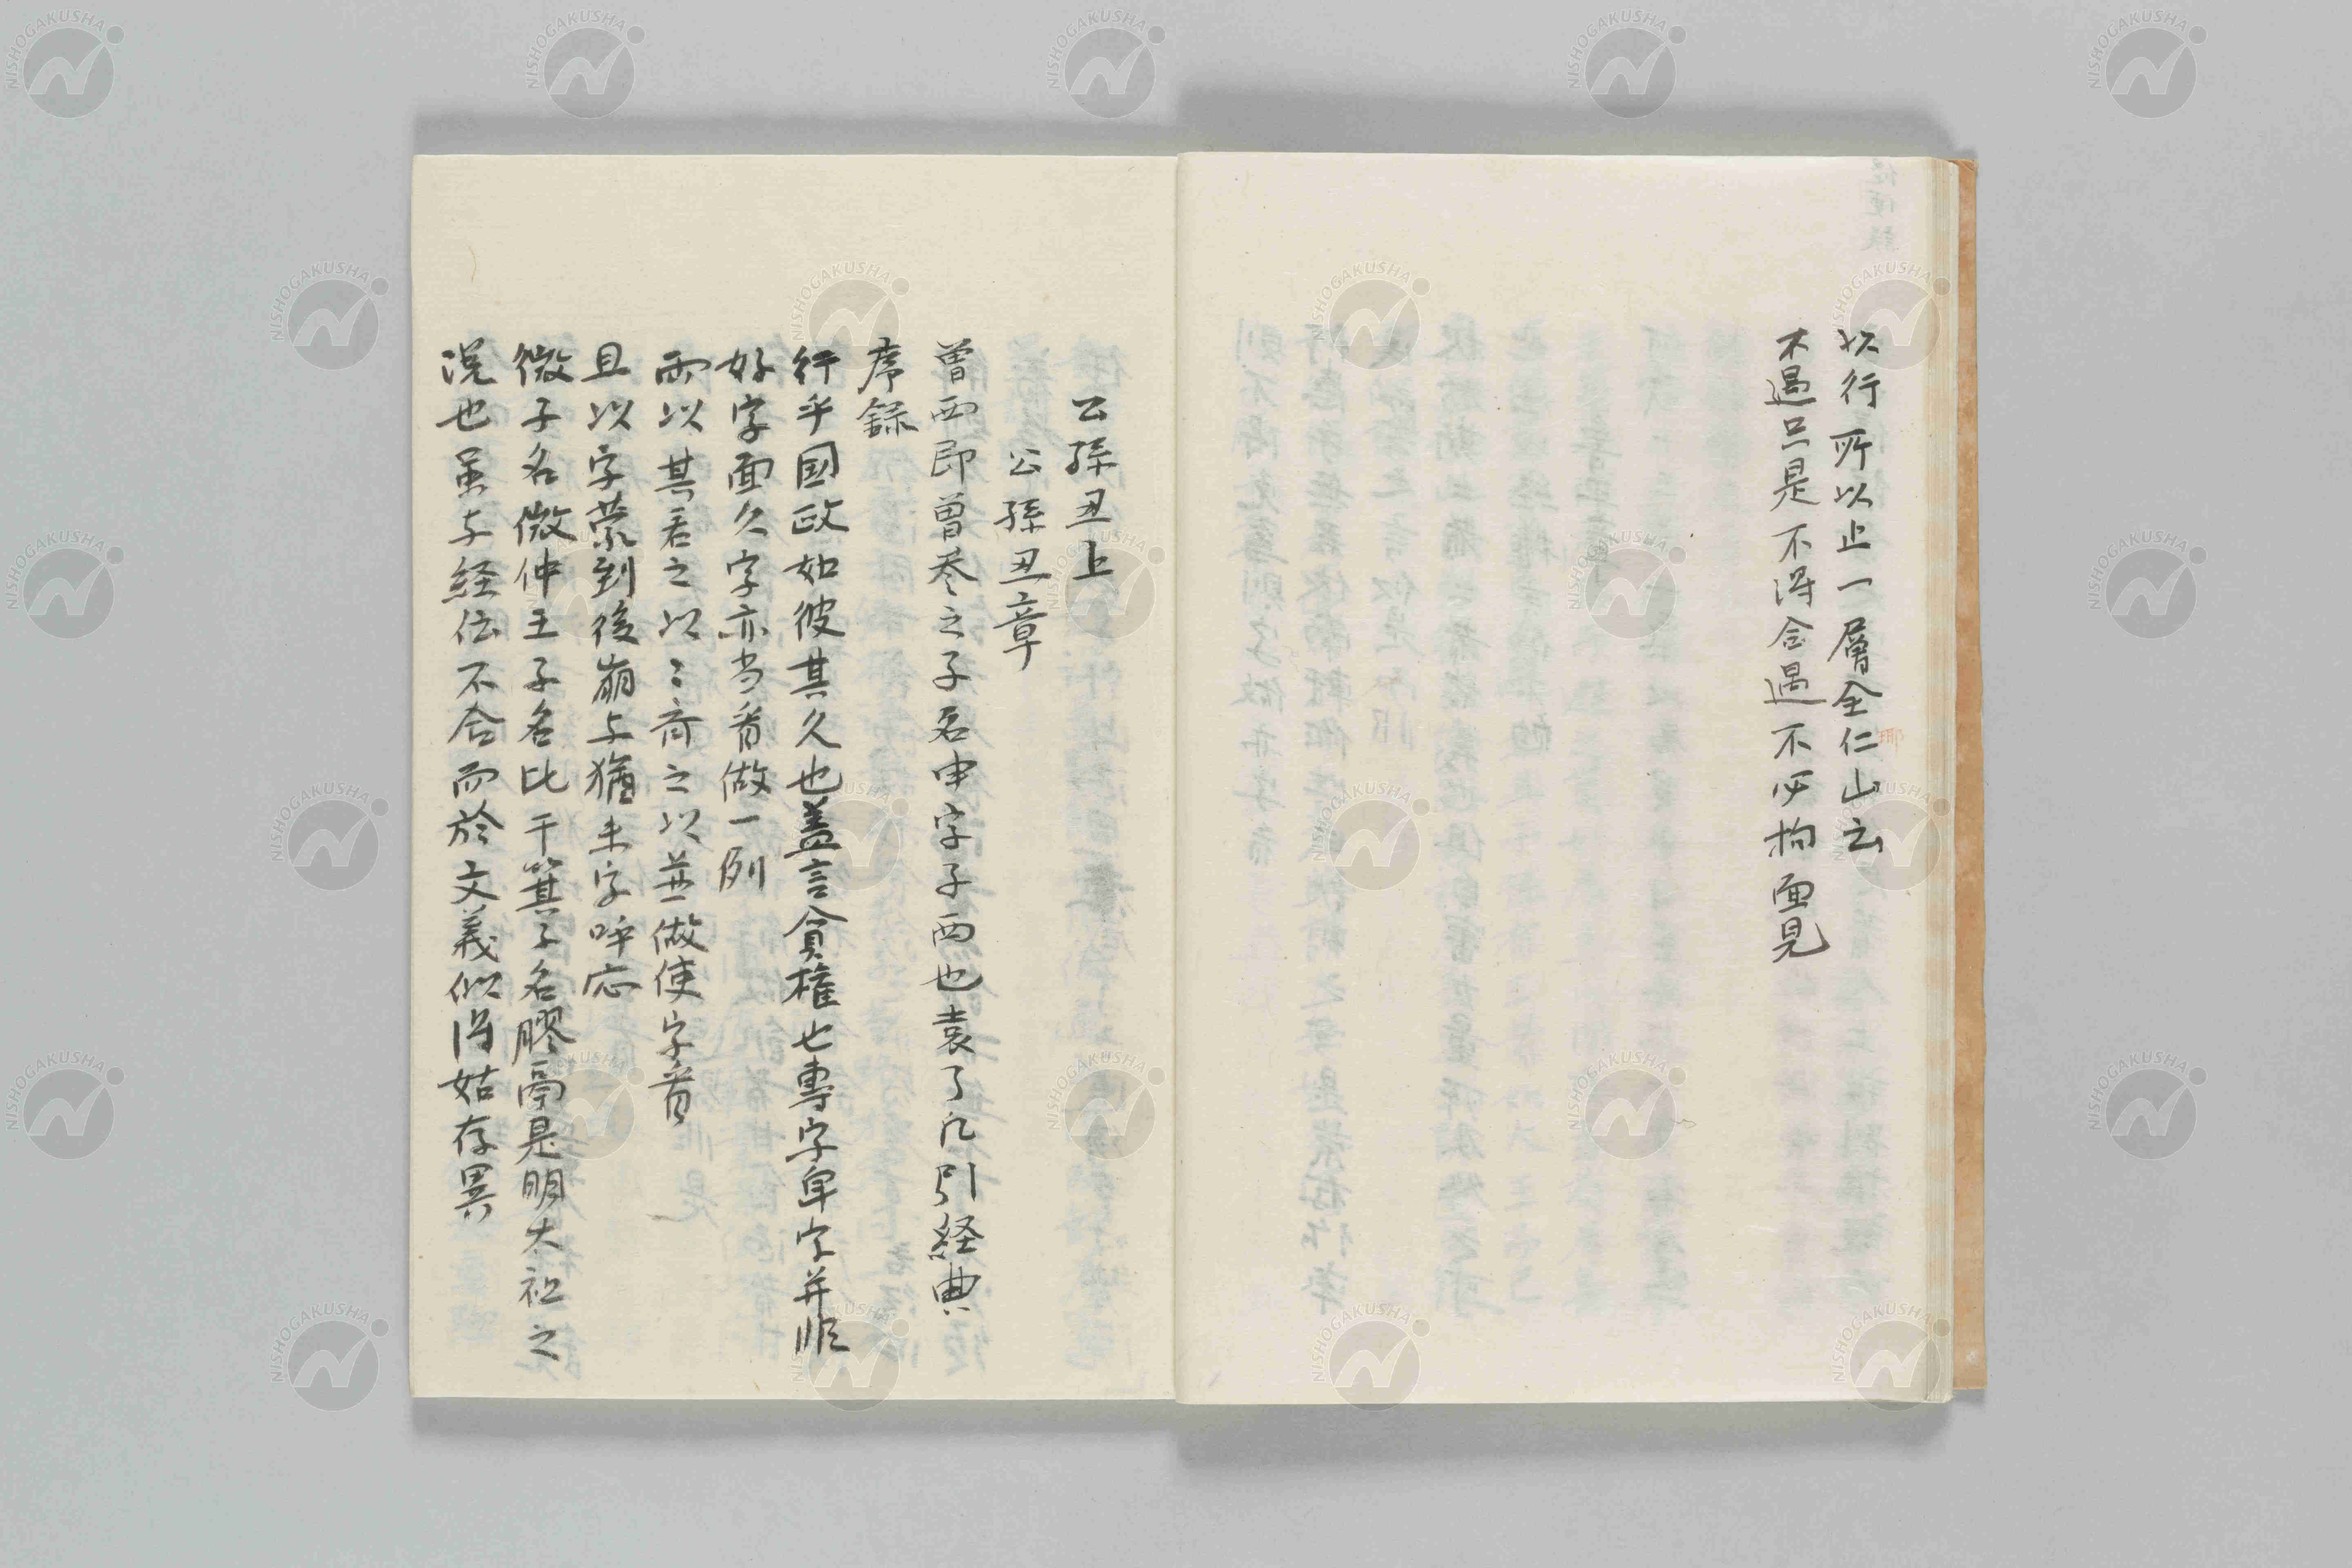 以行所以止一層全仁山云
不過只是不得会遇不必拘面見
公孫丑上
公孫丑章
曽西即曽参之子名申字子西也袁了凡引経典
序録
行乎国政如彼其久也蓋言貪権也専字卑字并非
好字面久字亦当看做一例
而以其君之以三斉之以並做使字看
且以字蒙到後崩与猶未字呼応
微子名微仲王子名比干箕子名膠鬲是明太祖之
説也虽与経伝不合而於文義似得姑存異